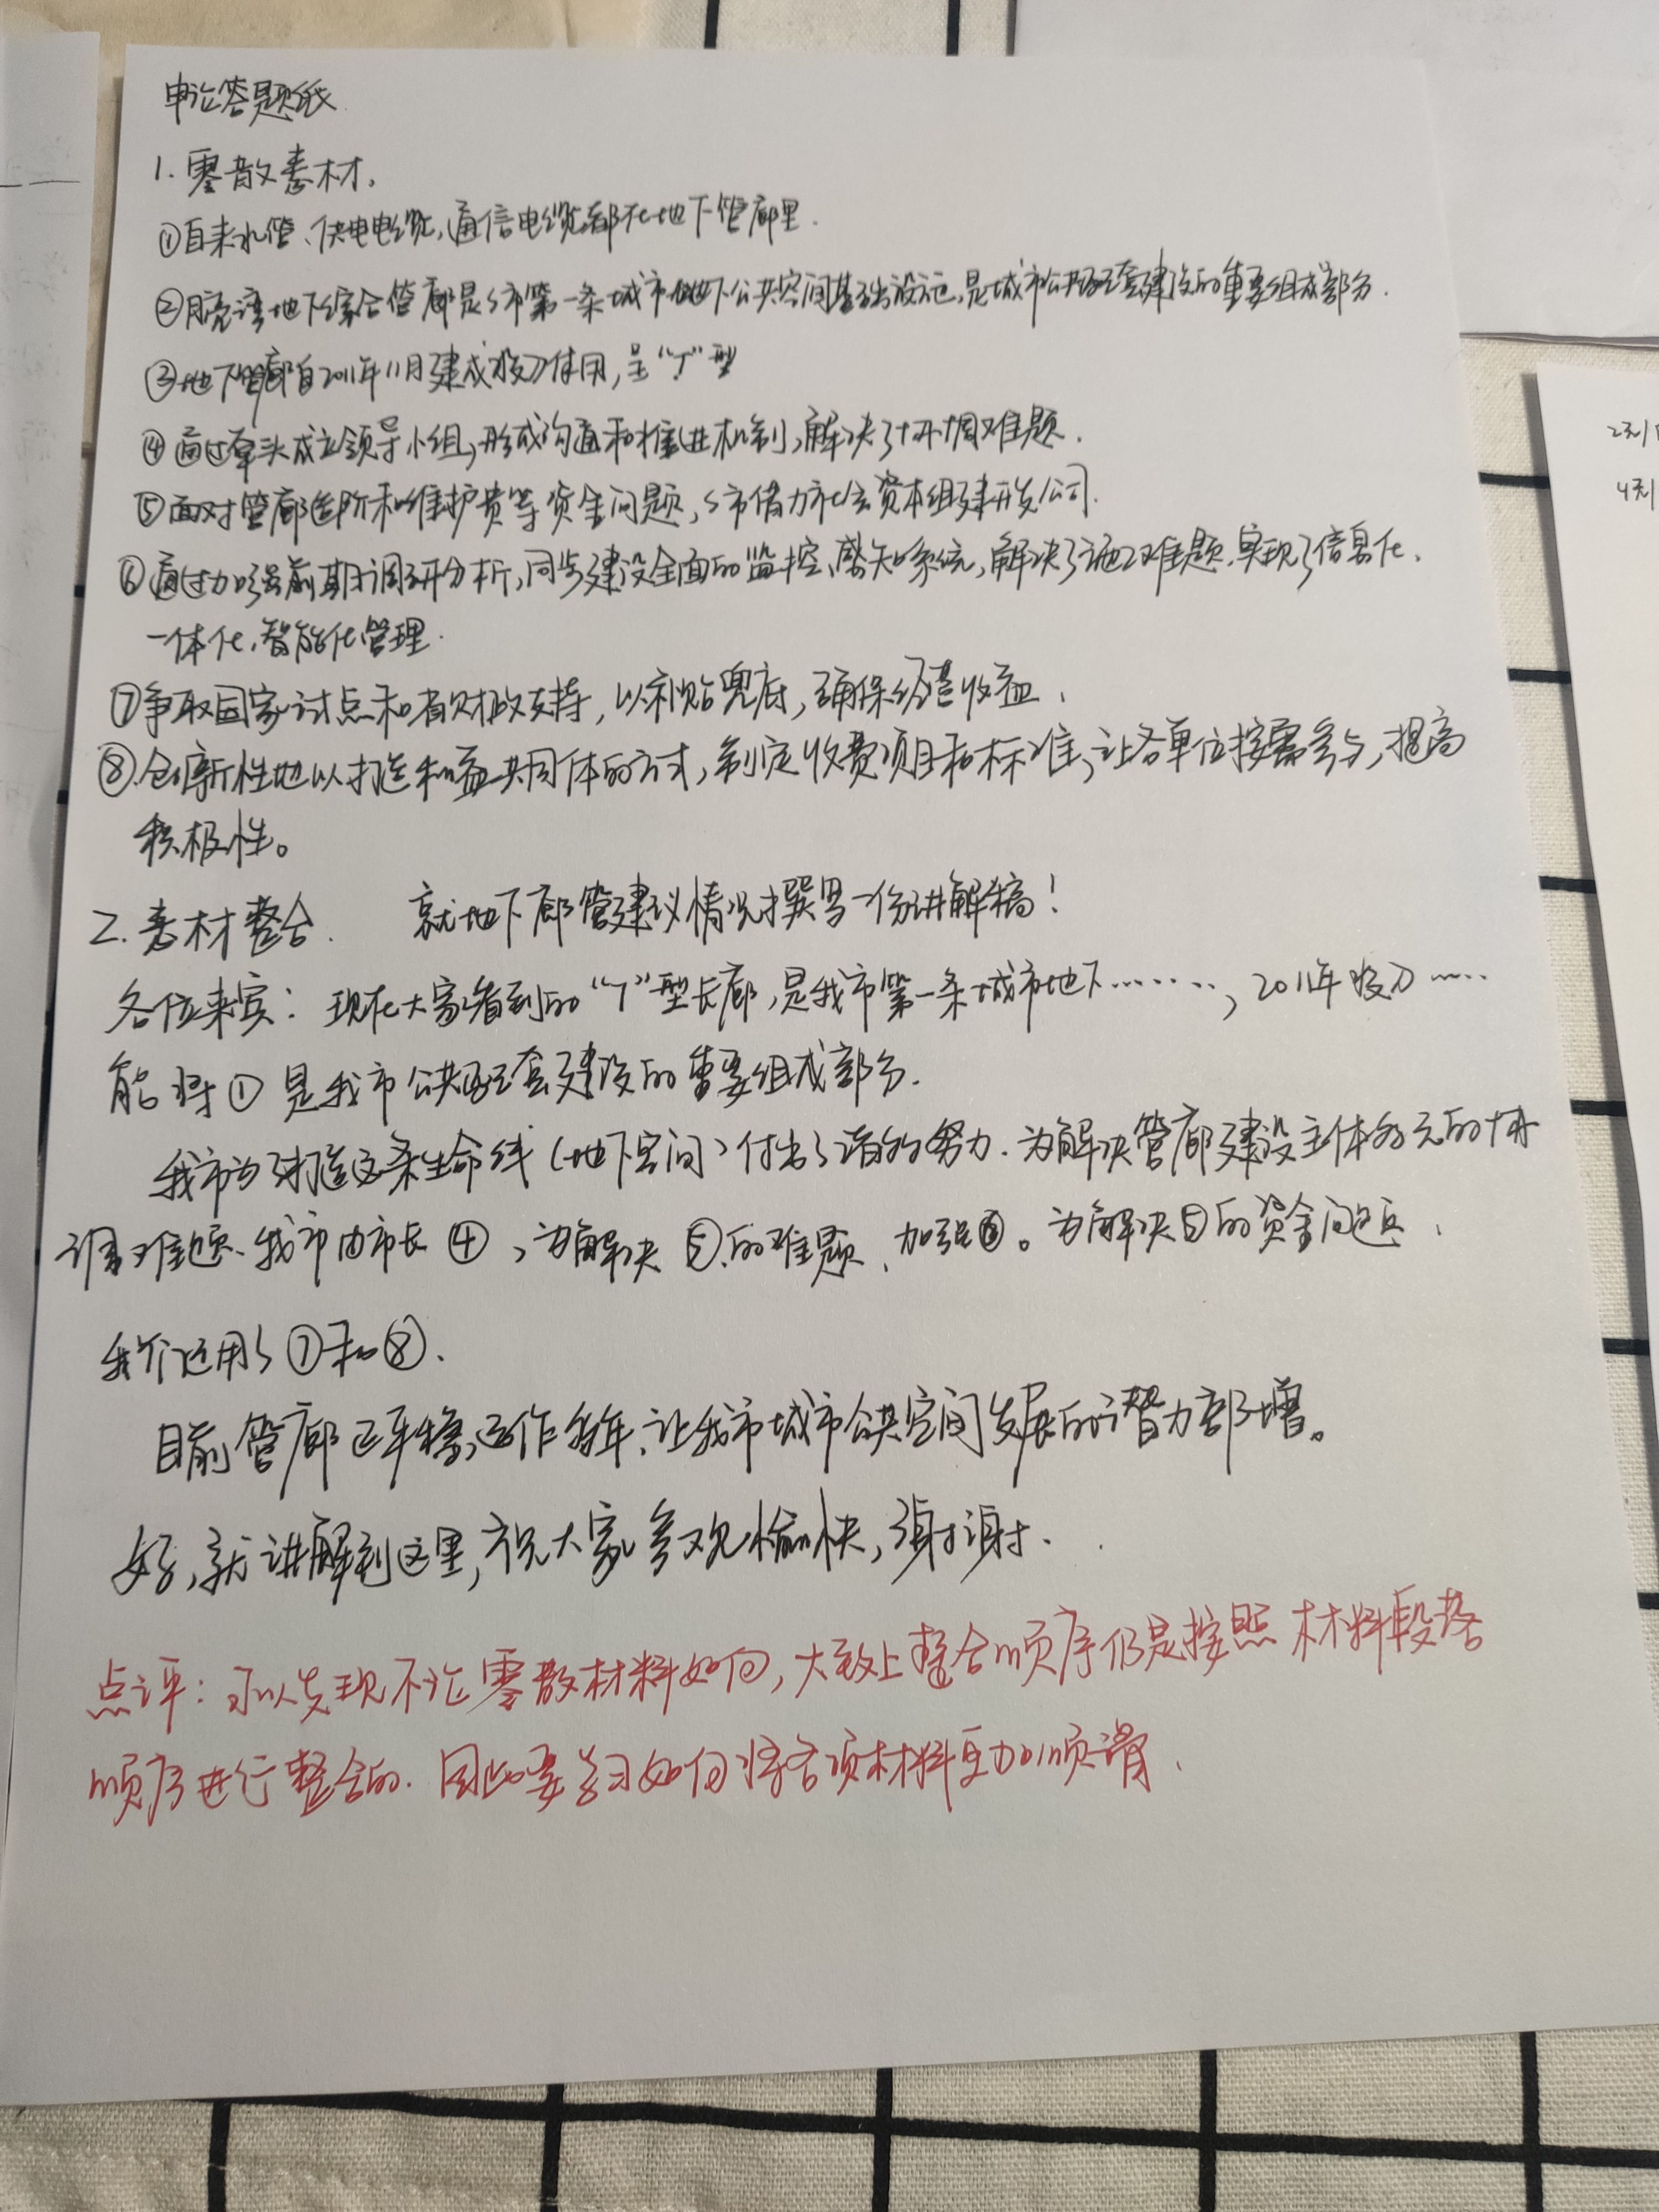 申论答题纸
1. 零散素材.
①自来水管、供电电缆,通信电缆都在地下管廊里.
②月亮湾地下综合管廊是S市第一条城市地下公共空间基础设施,是城市公共配套建设的重要组成部分.
③地下管廊自2011年11月建成投入使用,呈“T”型
④通过牵头成立领导小组,形成沟通和推进机制,解决了协调难题.
⑤面对管廊造价和维护费等资金问题,S市借力社会资本组建开发公司.
⑥通过加强前期调研分析,同步建设全面的监控、感知系统,解决了施工难题.实现了信息化.
一体化,智能化管理.
⑦争取国家试点和省财政支持,以补贴兜底,确保经营收益.
⑧创新性地以打造利益共同体的方式,制定收费项目和标准,让各单位按需参与,提高
积极性。
2. 素材整合. 就地下廊管建议情况撰写一份讲解稿!
各位来宾:现在大家看到的“T”型长廊,是我市第一条城市地下……,2011年投入……
能将①是我市公共配套建设的重要组成部分.
我市为了打造这条生命线(地下空间)付出了诸多努力.为解决管廊建设主体多元的协
调难题、我市由市长④,为解决⑤的难题,加强⑥。为解决⑤的资金问题,
我们运用了⑦和⑧.
目前管廊已平稳运作多年,让我市城市公共空间发展的潜力都增。
好,就讲解到这里,祝大家参观愉快,谢谢.
点评:可以发现不论零散材料如何,大致上整合顺序仍是按照材料段落
顺序进行整合的.因此要学习如何将各项材料更加顺滑.
2天1
4天1